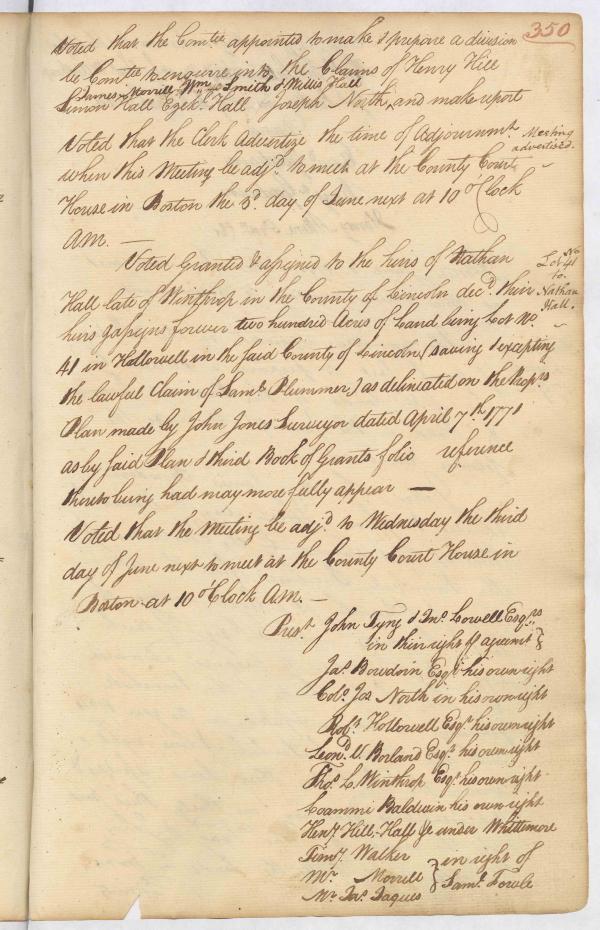 350
Voted that the Comtee appointed to make & prepare a division
be Comtee to enquire into the Claims of Henry Hill
James Morrill Wm Smith & Willis Hall
Simon Hall Ezekl Hall Joseph North and make report
Voted that the Clerk Advertize the time of Adjournmt
Meeting
advertised.
when this Meeting be adjd to meet at the County Court
House in Boston the 3d day of June next at 10 o'Clock
AM. —
Voted Granted & assigned to the heirs of Nathan
Lot No
41
to
Nathan
Hall.
Hall late of Winthrop in the County of Lincoln decd their
heirs & assigns forever two hundred Acres of Land being Lot No
41 in Hollowell in the said County of Lincoln (saving & excepting
the lawful Claim of Saml Plummer) as delineated on the Proprs
Plan made by John Jones Surveyor dated April 7th 1771
as by said Plan & third Book of Grants folio reference
thereto being had may more fully appear —
Voted that the Meeting be adjd to Wednesday the third
day of June next to meet at the County Court House in
Boston at 10 o'Clock A.M. —
Prest John Tyng & Jno Lowell Esqrs
in their right & agreemt
Jas Bowdoin Esqr his own right
Colo Jos North in his own right
Robt Hollowell Esqr his own right
Leond V. Borland Esqr his own right
Thos L. Winthrop Esqr his own right
Loammi Baldwin his own right
Heny Hill-Hall &c under Whittimore
Timy Walker
Mr Morrell
Mr Jas Jaques
in right of
Saml Fowle